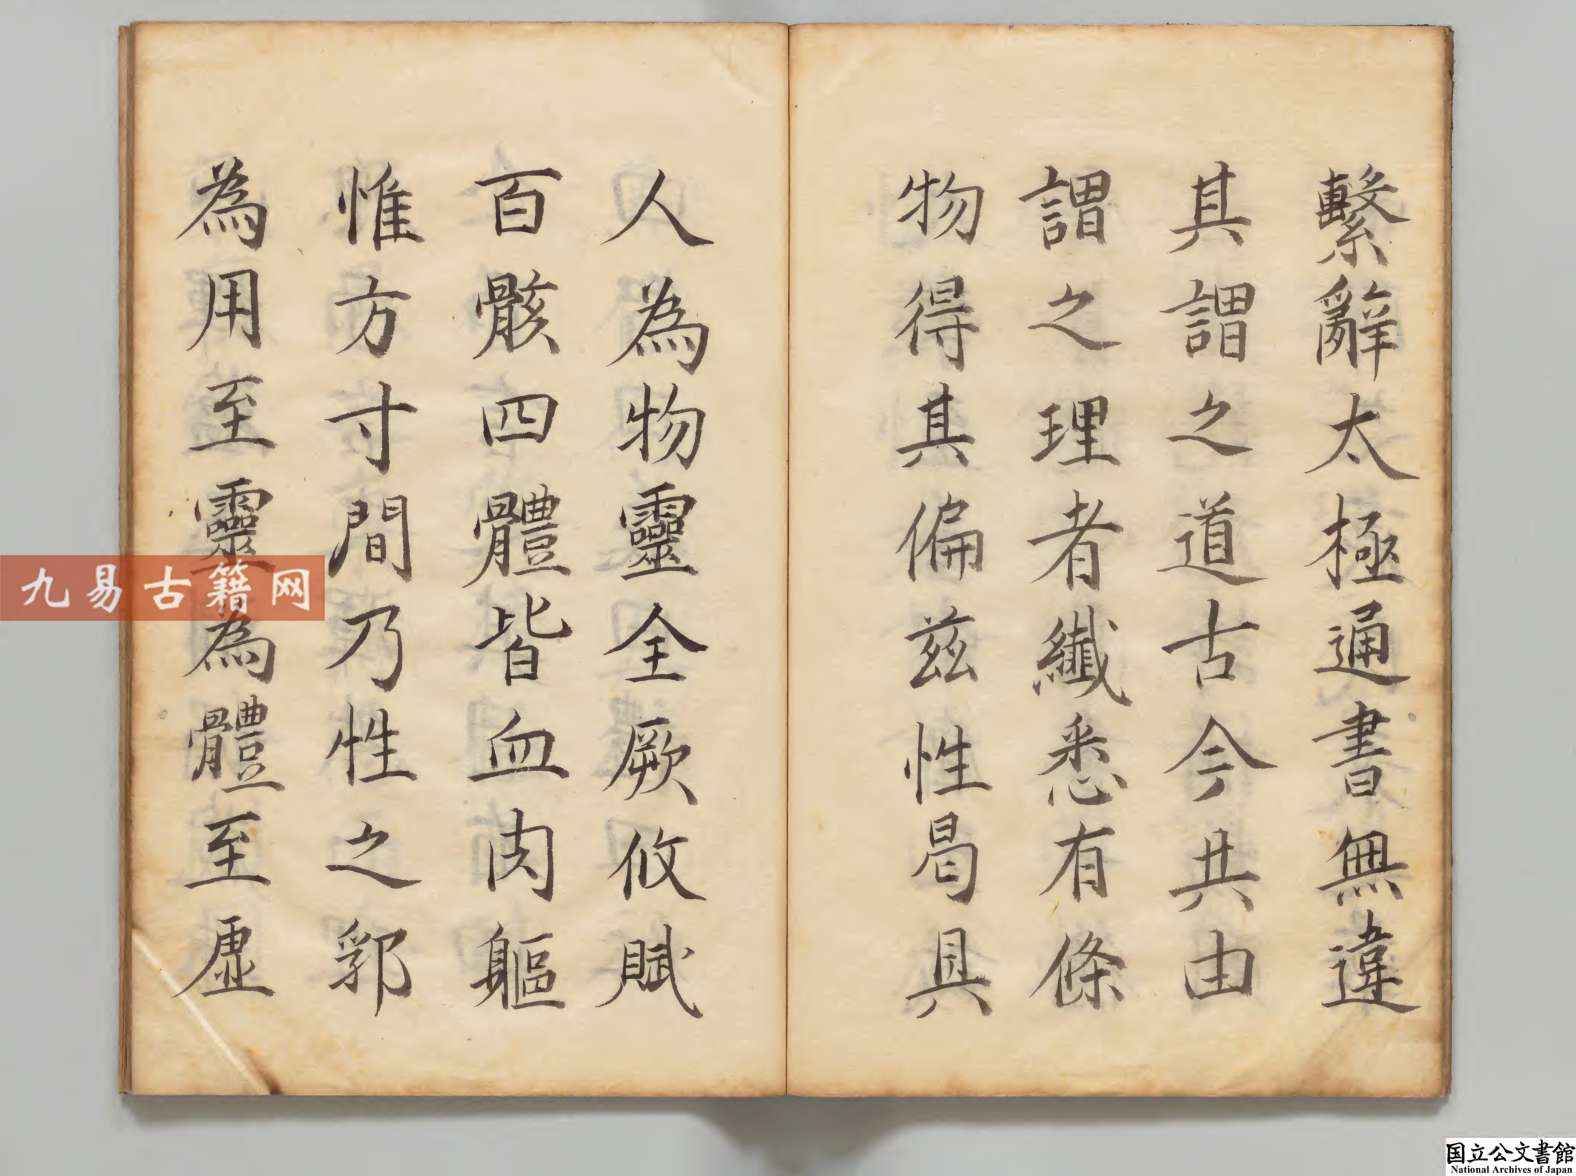 繫辭太極通書無違
其謂之道古今共由
謂之理者纖悉有條
物得其偏茲性曷具
人為物靈全厥攸賦
百骸四體皆血肉軀
惟方寸間乃性之郛
為用至靈為體至虛
九易古籍网
国立公文書館
National Archives of Japan